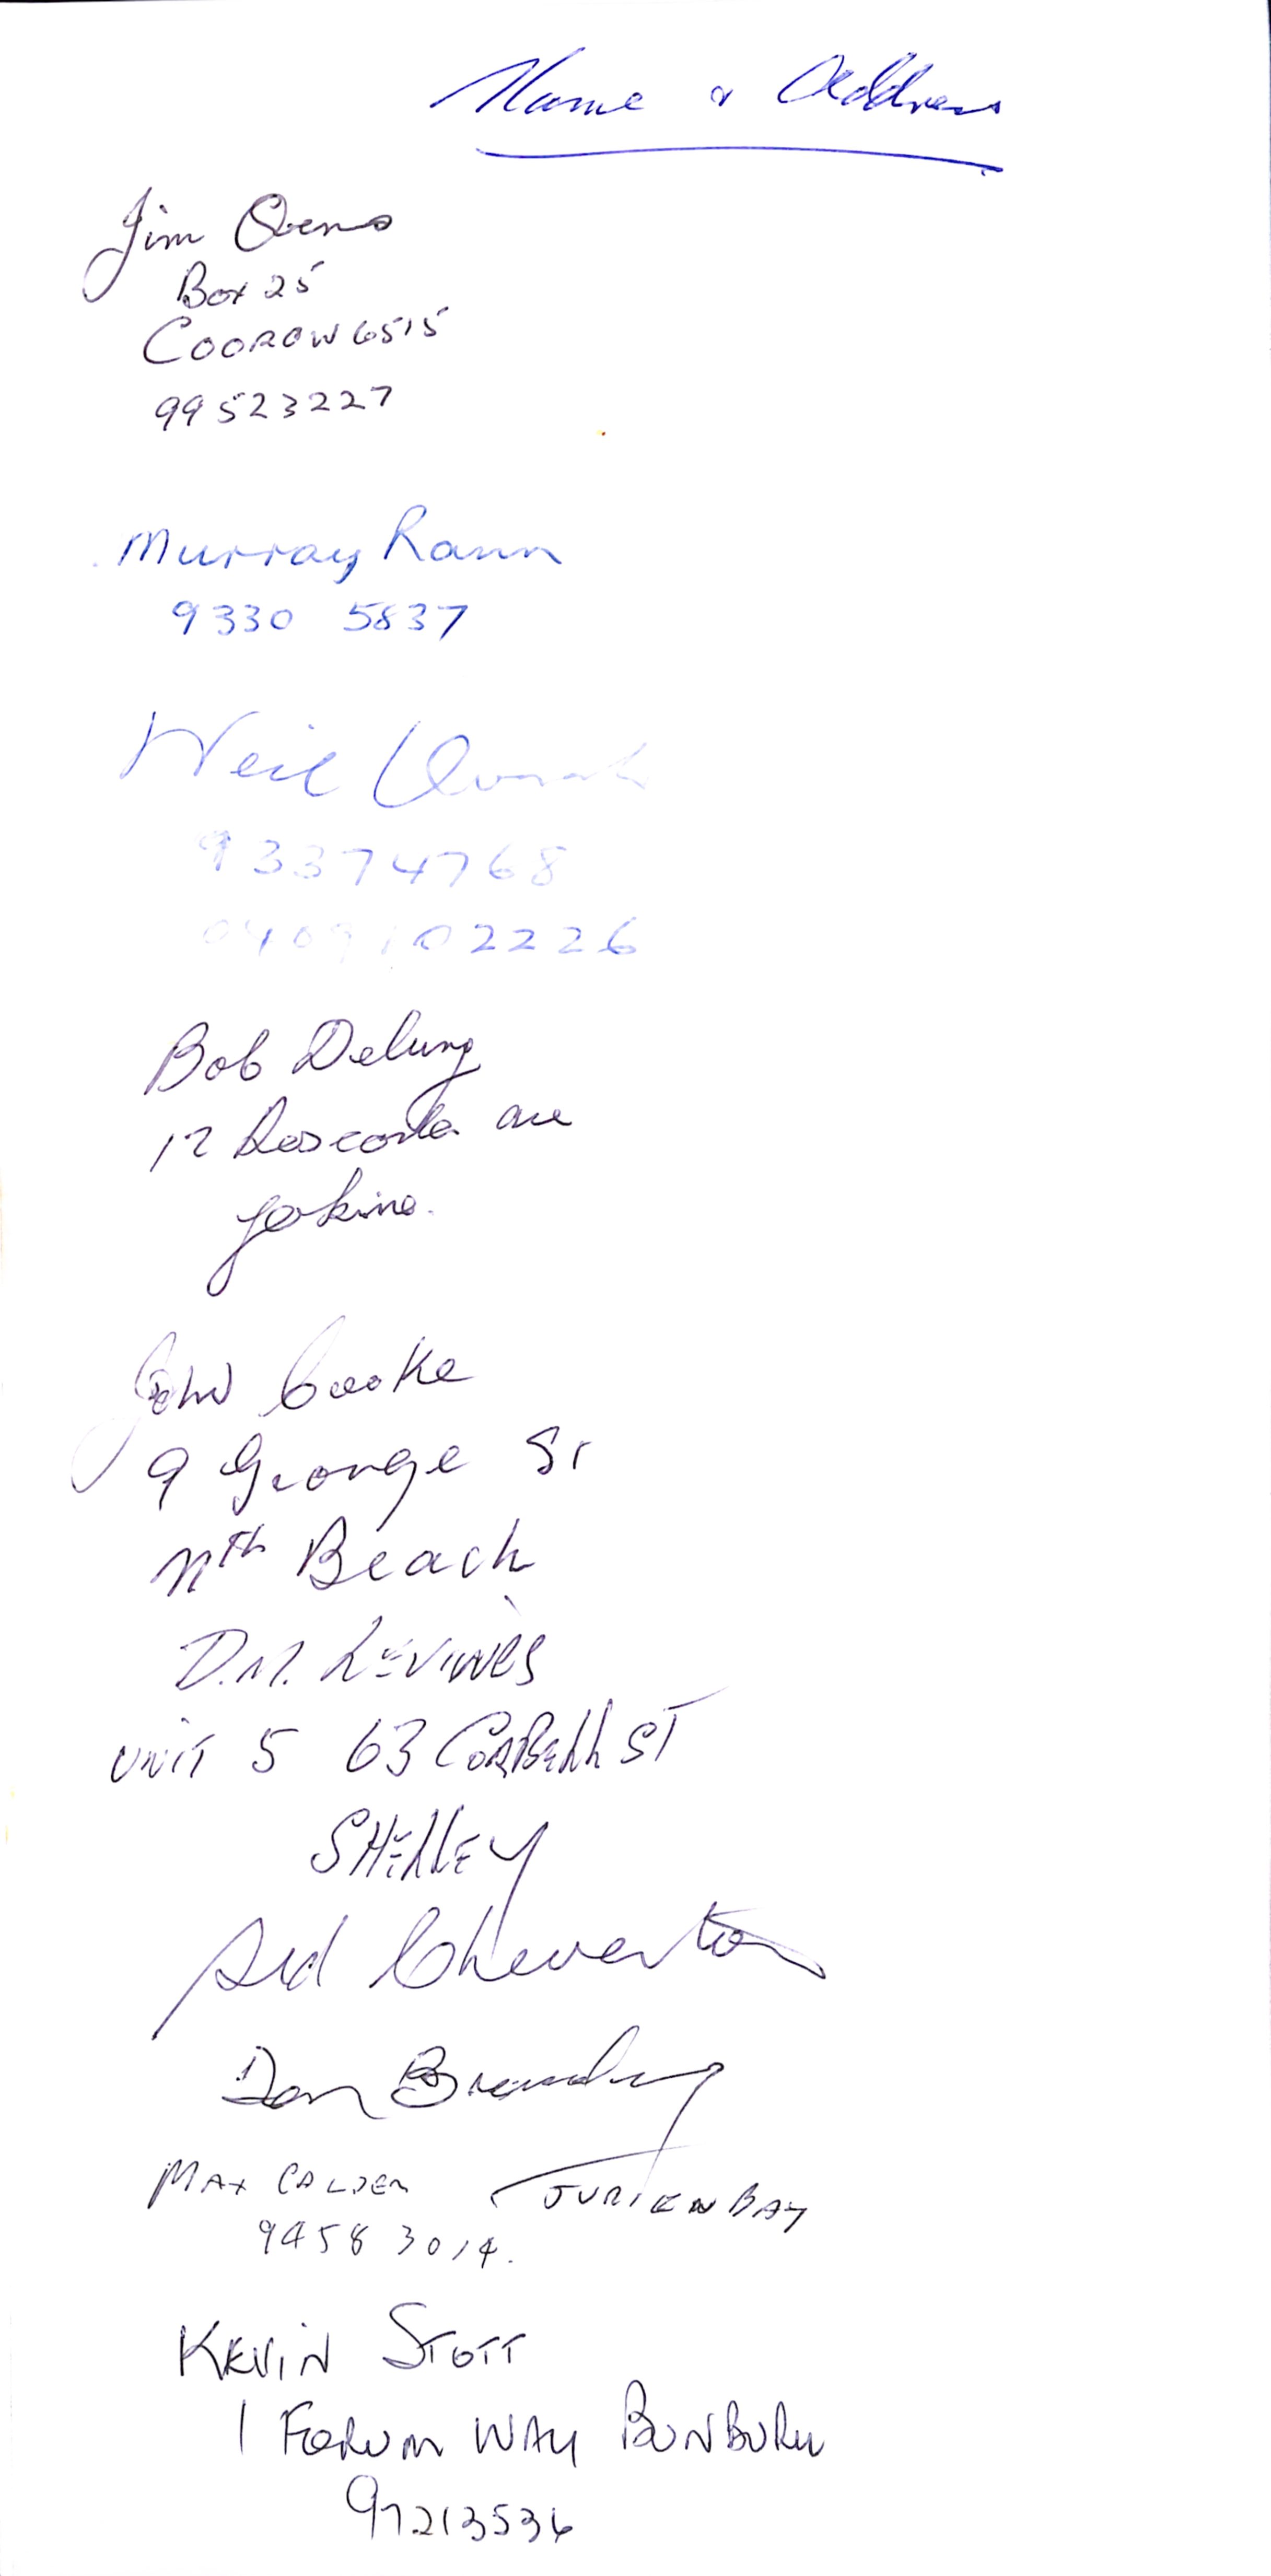 Name & Address
Jim Owens
Box 25
COOROW 6515
99523227
Murray Rann
9330 5837
Neil
93374768
0409102226
Bob Delury
12 Roscorla ave
Yokine.
John Cooke
9 George St
Nth Beach
D.M. LEVINES
UNIT 5 63 CORBELL ST
SHELLEY
Sid Cheverton
Don
MAX CALDER JURIEN BAY
9458 3014.
KEVIN STOTT
1 FORUM WAY BUNBURY
97213536